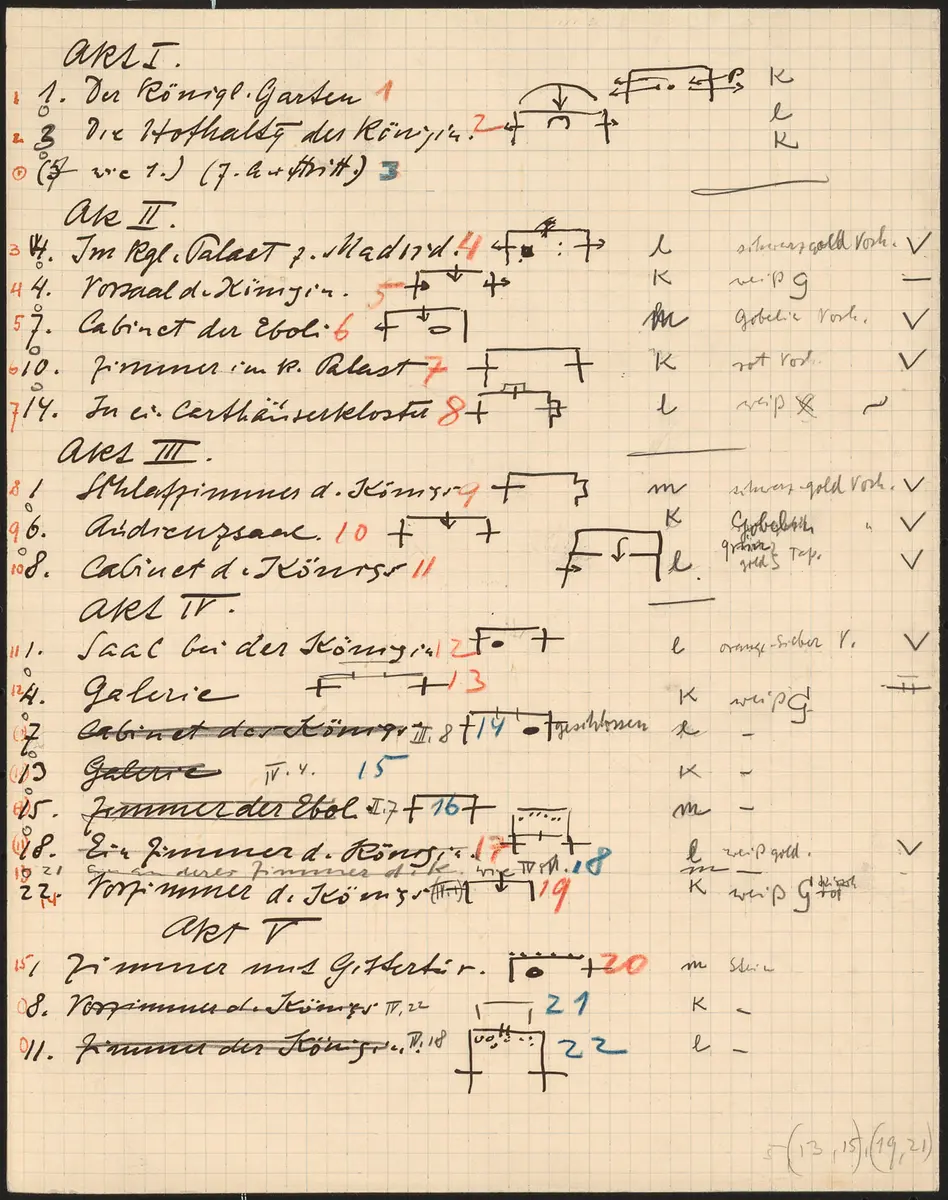 Akt I.
1 1. Der Königl. Garten 1 P K
l
2 3 Die Hofhaltg der Königin. 2 K
(5 wie 1.) (7. Auftritt.) 3
Ak II.
3 4. Im Kgl. Palast z. Madrid. 4 l schwarzgold Vorh. ✓
4 4. Vorsaal d. Königin. 5 K weiß G —
5 7. Cabinet der Eboli 6 m Gobelin Vorh. ✓
6 10. Zimmer im k. Palast 7 K rot Vorh. ✓
7 14. In ei. Carthäuserkloster 8 l weiß
Akt III.
8 1 Schlafzimmer d. Königs 9 m schwarz-gold Vorh. ✓
9 6. Audienzsaal. 10 K Gobelin " ✓
10 8. Cabinet d. Königs 11 l. gold Tap. ✓
Akt IV.
11 1. Saal bei der Königin 12 l orange-Silber V. ✓
12 4. Galerie 13 K weiß G
7 Cabinet des Königs III. 8 14 geschlossen l –
13 Galerie IV. 4. 15 K –
15. Zimmer der Ebol. II. 7 16 m –
18. Ein Zimmer d. Königin. 17 l weiß gold. ✓
21 ein anderes Zimmer d. K. wie 18 m —
22. 14 Vorzimmer d. Königs 19 K weiß G
Akt V
15 1 Zimmer mit Gittertür. 20 m Stein
8. Vorzimmer d. Königs IV. 22 21 K –
11. Zimmer der Königin. IV. 18 22 l –
(13, 15), (19, 21)